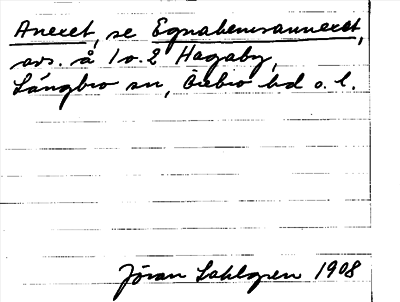 Anexet, se Egnahemsannexet,
avs. å 1 o. 2 Hagaby,
Längbro sn, Örebro hd o. l.
Jöran Sahlgren 1908